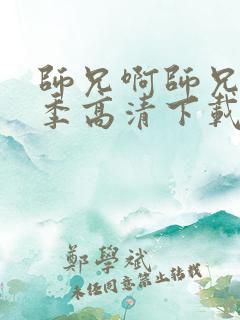 師兄啊師兄
季高清下載
鄭學斌
未经同意禁止转载